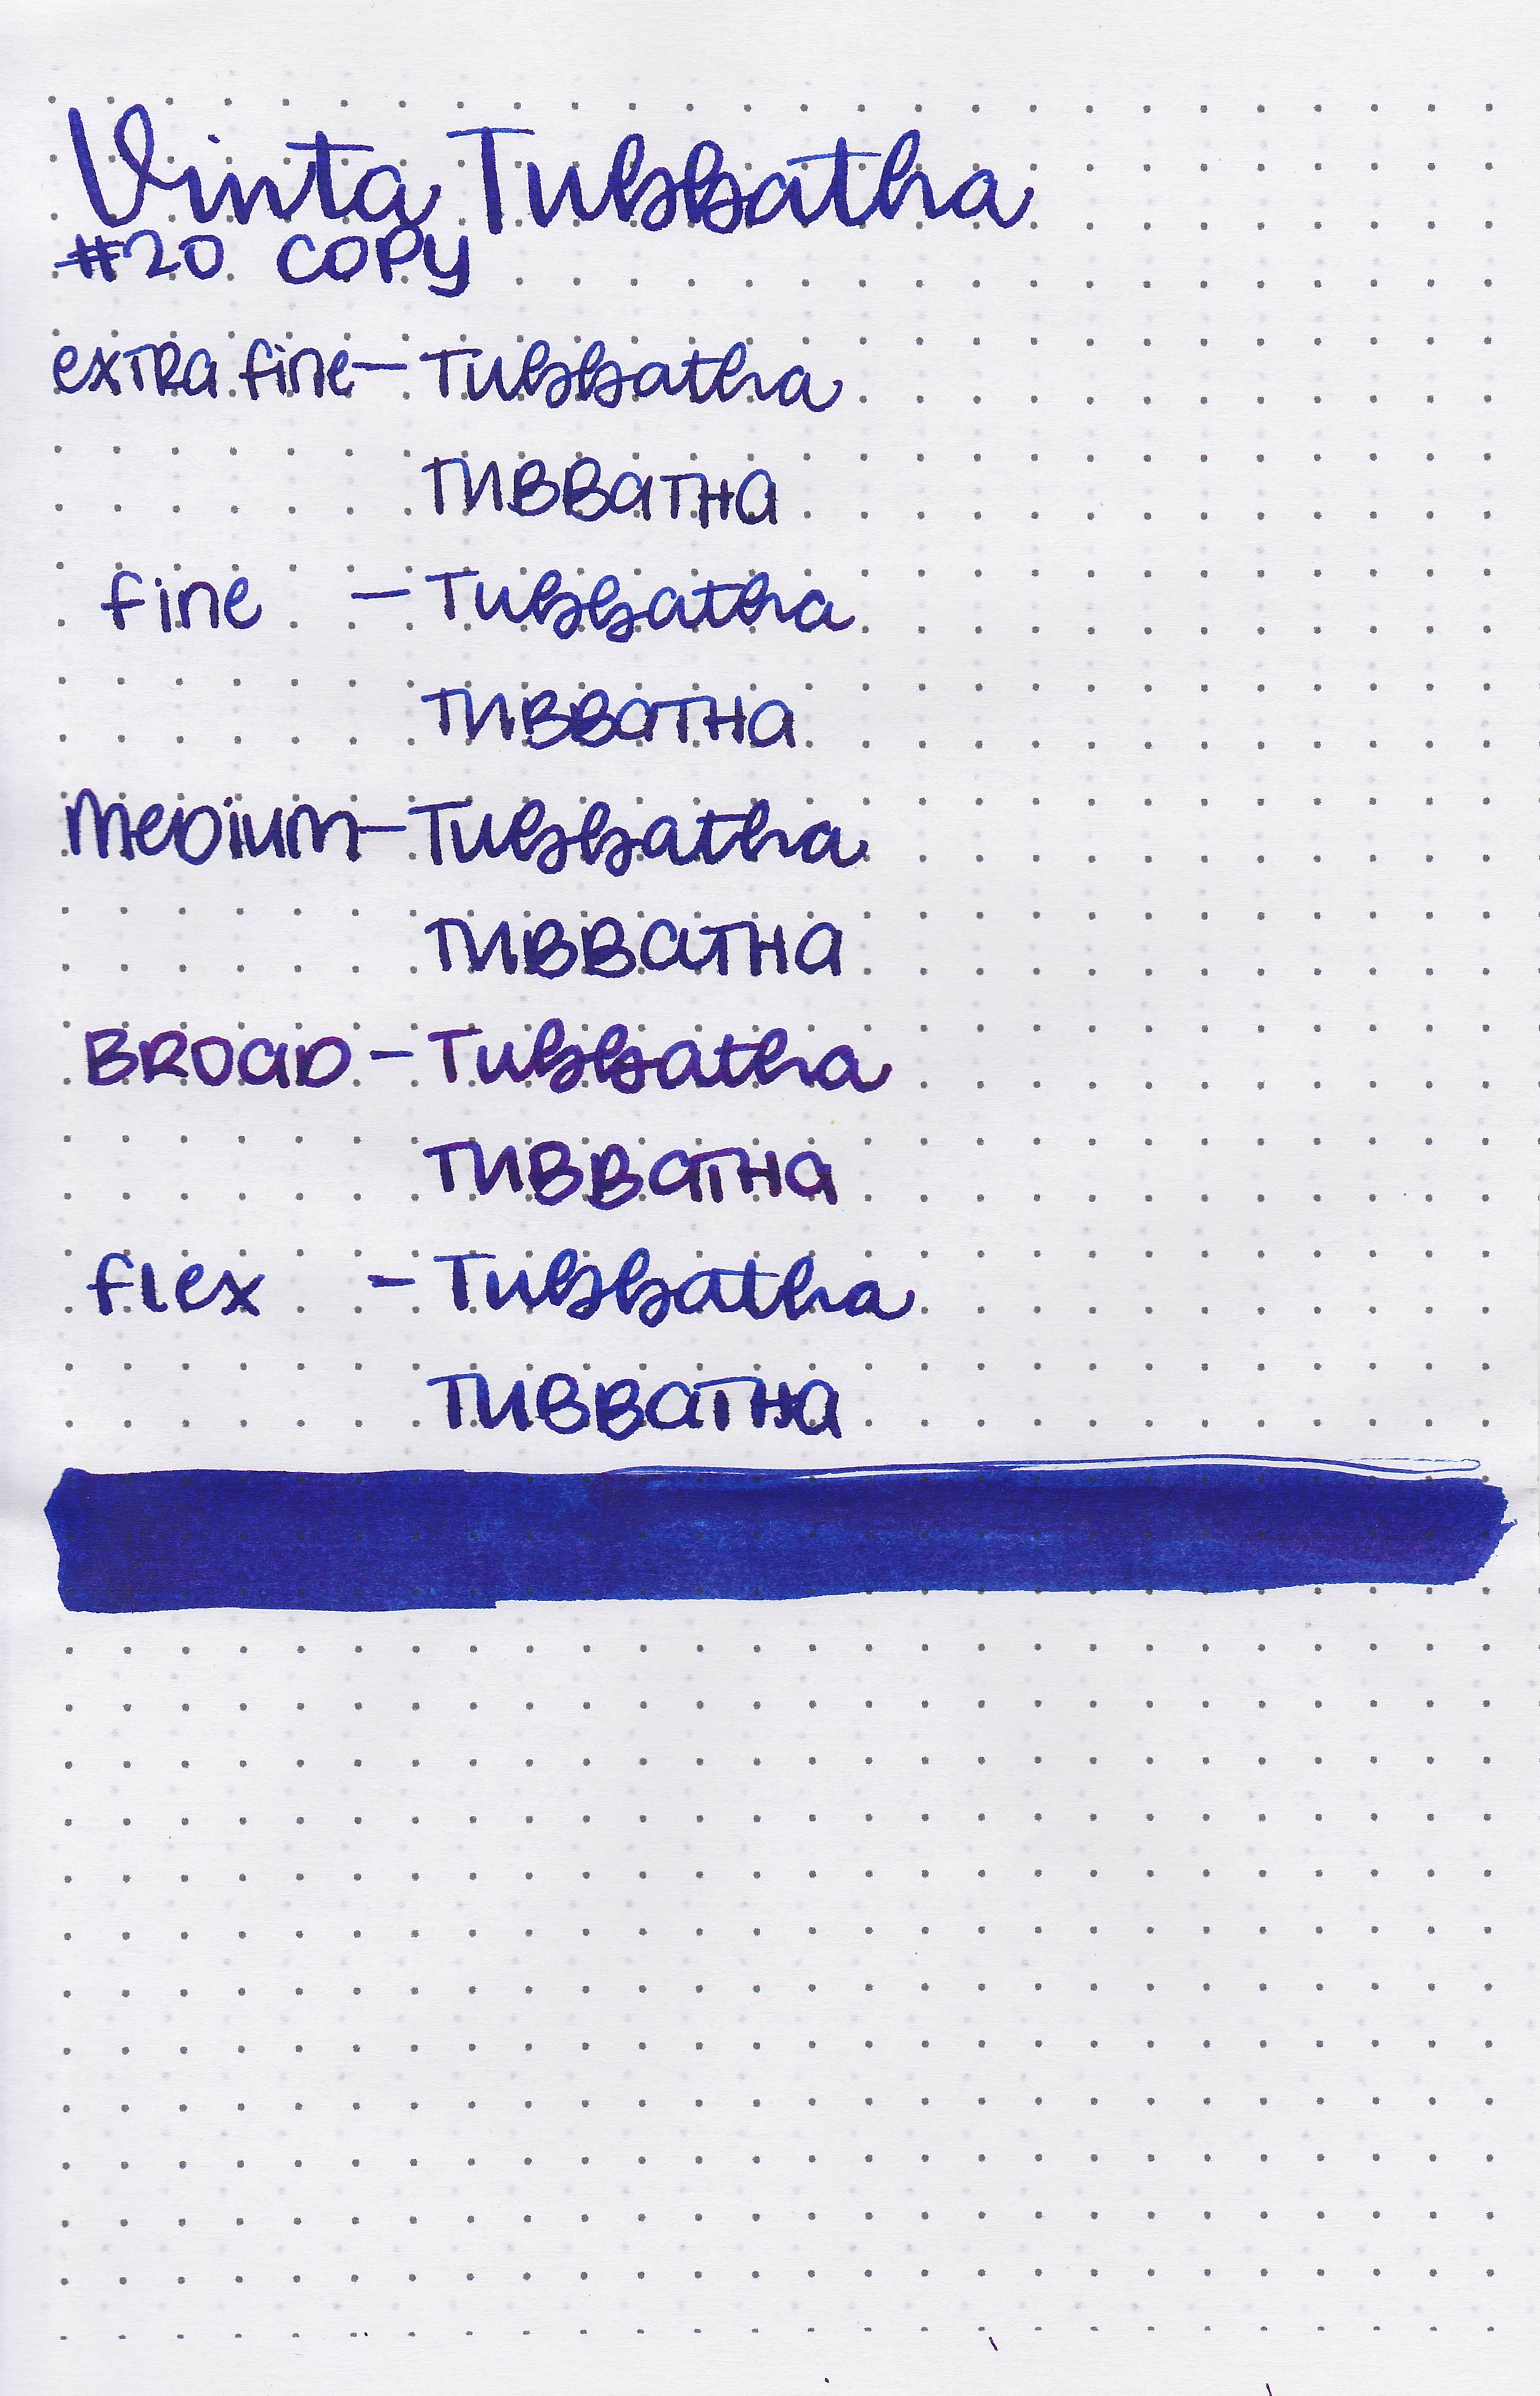 Vinta Tubbatha
#20 COPY
extra fine - Tubbatha
TUBBATHA
fine - Tubbatha
TUBBATHA
MEDIUM - Tubbatha
TUBBATHA
BROAD - Tubbatha
TUBBATHA
flex - Tubbatha
TUBBATHA